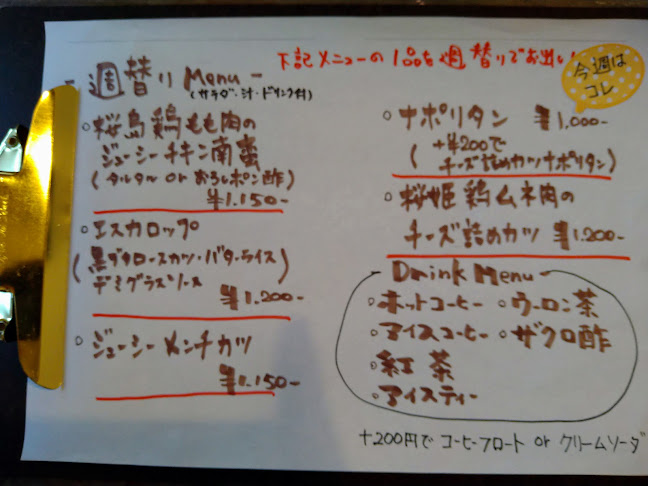 下記メニューの1品を週替りでお出し!
今週は
コレ
週替り Menu
(サラダ・汁・ドリンク付)
○桜島鶏もも肉の
ジューシーチキン南蛮
(タルタル or おろしポン酢)
¥1.150-
○エスカロップ
(黒ブタロースカツ・バターライス)
デミグラスソース
¥1.200-
○ジューシーメンチカツ
¥1.150-
○ナポリタン ¥1.000-
(+¥200で
チーズ詰めカツナポリタン)
○桜姫鶏ムネ肉の
チーズ詰めカツ ¥1.200-
Drink Menu
○ホットコーヒー ○ウーロン茶
○アイスコーヒー ○ザクロ酢
○紅茶
○アイスティー
+200円でコーヒーフロート or クリームソーダ